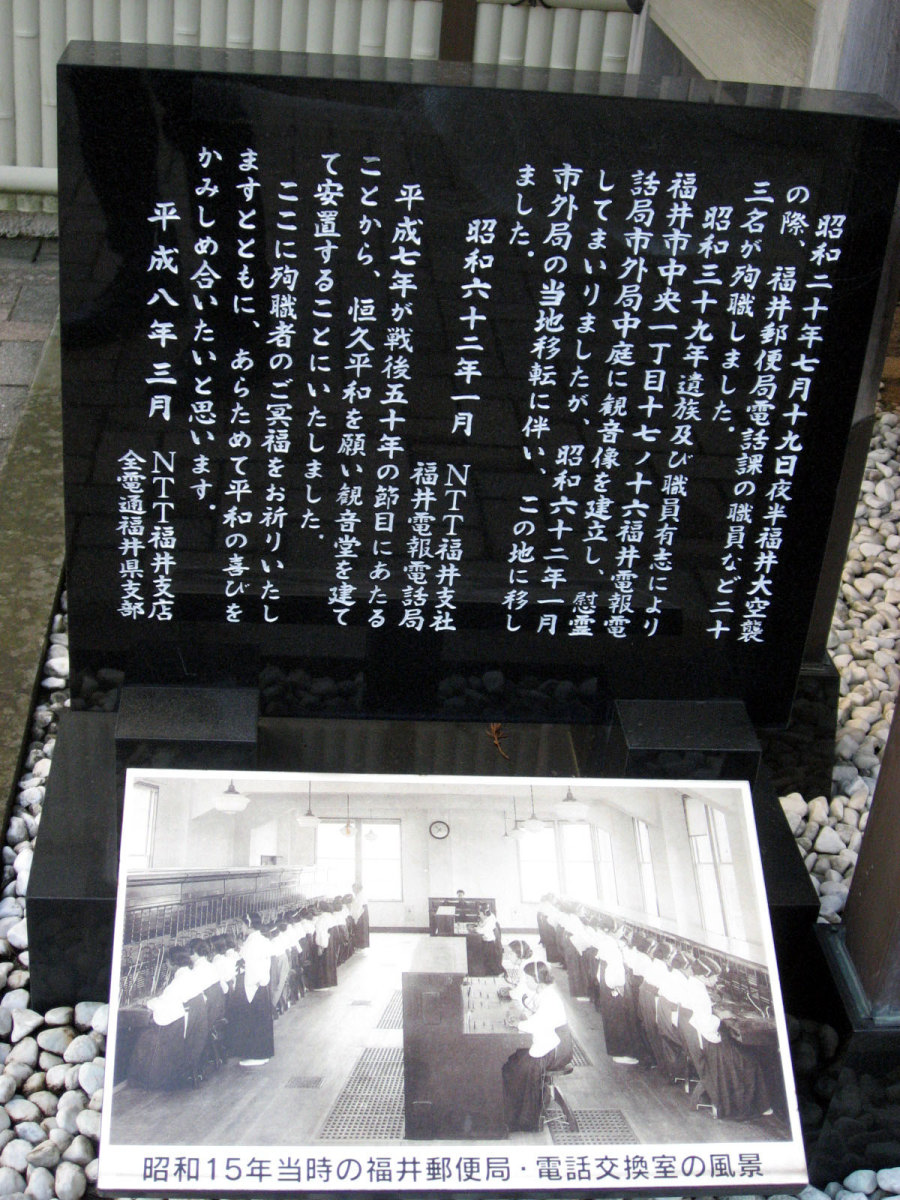 昭和二十年七月十九日夜半福井大空襲
の際、福井郵便局電話課の職員など二十
三名が殉職しました。
昭和三十九年遺族及び職員有志により
福井市中央一丁目十七ノ十六福井電報電
話局市外局中庭に観音像を建立し、慰霊
してまいりましたが、昭和六十二年一月
市外局の当地移転に伴い、この地に移し
ました。
昭和六十二年一月
NTT福井支社
福井電報電話局
平成七年が戦後五十年の節目にあたる
ことから、恒久平和を願い観音堂を建て
て安置することにいたしました。
ここに殉職者のご冥福をお祈りいたし
ますとともに、あらためて平和の喜びを
かみしめ合いたいと思います。
平成八年三月
NTT福井支店
全電通福井県支部
昭和15年当時の福井郵便局・電話交換室の風景